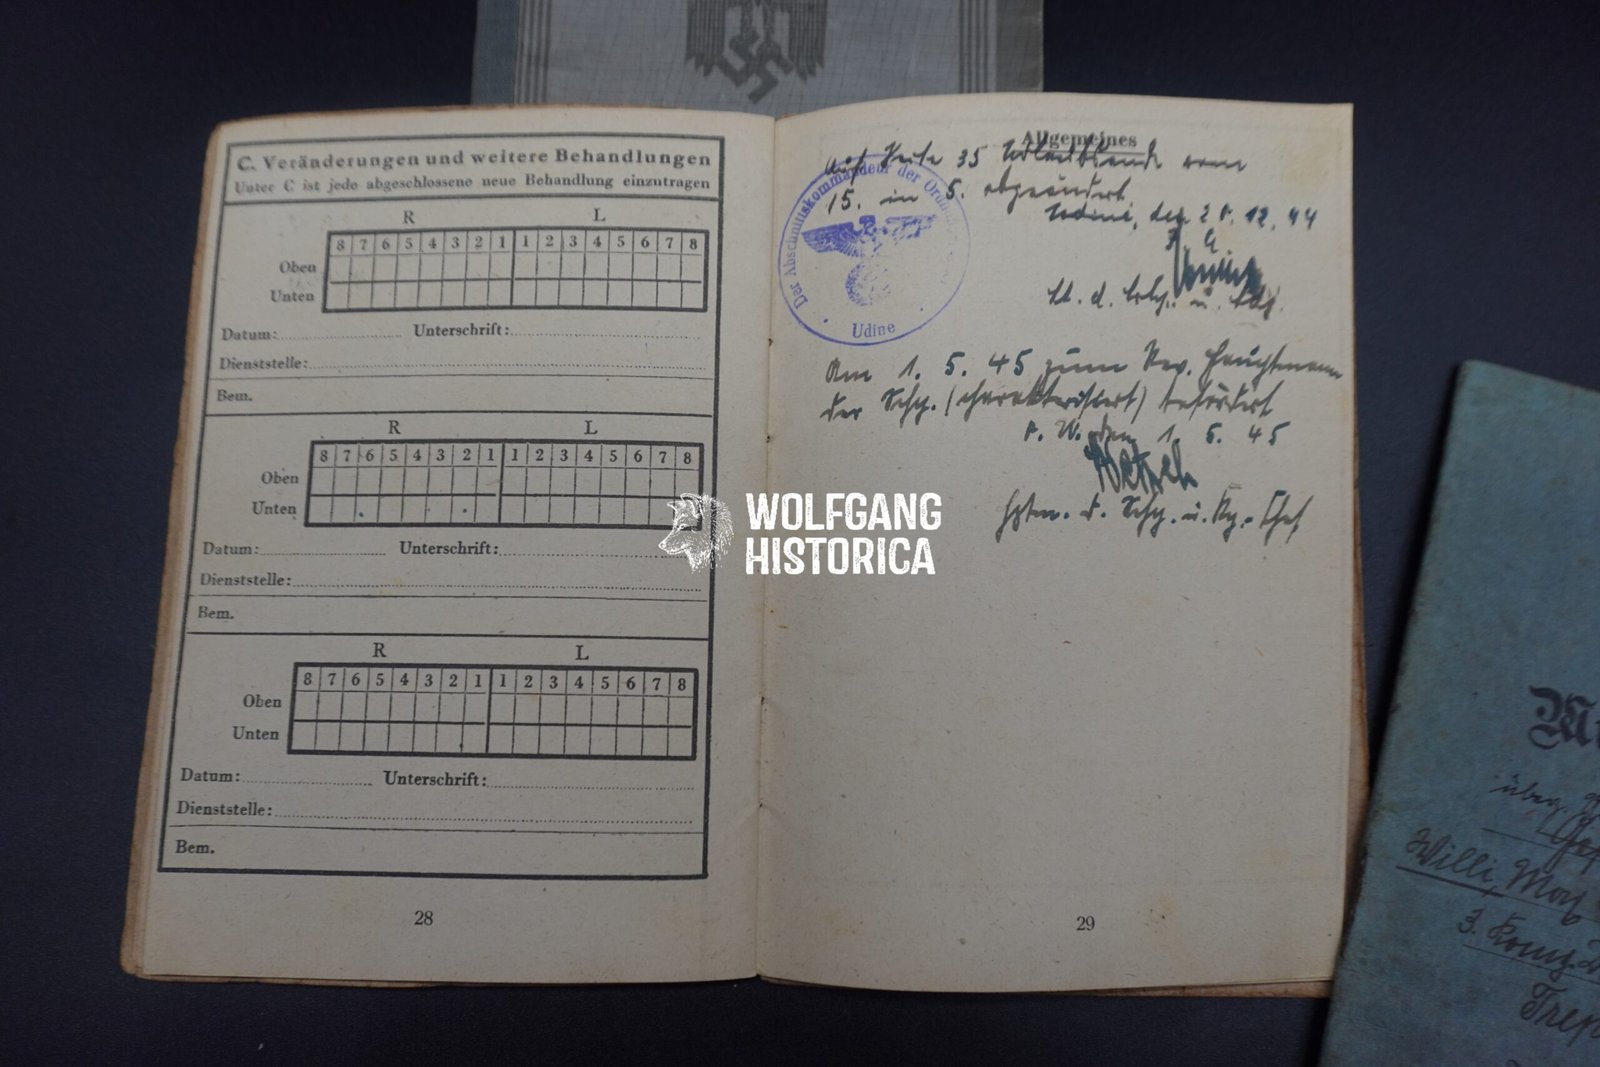 C. Veränderungen und weitere Behandlungen
Unter C ist jede abgeschlossene neue Behandlung einzutragen
R L
8 7 6 5 4 3 2 1 1 2 3 4 5 6 7 8
Oben
Unten
Datum: Unterschrift:
Dienststelle:
Bem.
R L
8 7 6 5 4 3 2 1 1 2 3 4 5 6 7 8
Oben
Unten
Datum: Unterschrift:
Dienststelle:
Bem.
R L
8 7 6 5 4 3 2 1 1 2 3 4 5 6 7 8
Oben
Unten
Datum: Unterschrift:
Dienststelle:
Bem.
28
Allgemeines
Auf Seite 35 vom
15. in 5. abgeändert.
Udine, den 12. 44
Der Abschnittskommandeur der
Udine
Am 1. 5. 45 zum Rev. Hauptmann
der Schp. (charakterisiert) befördert
den 1. 5. 45
Hptm. d. Schp. u. Kp.-Chef
29
WOLFGANG
HISTORICA
über
Willi,
3.